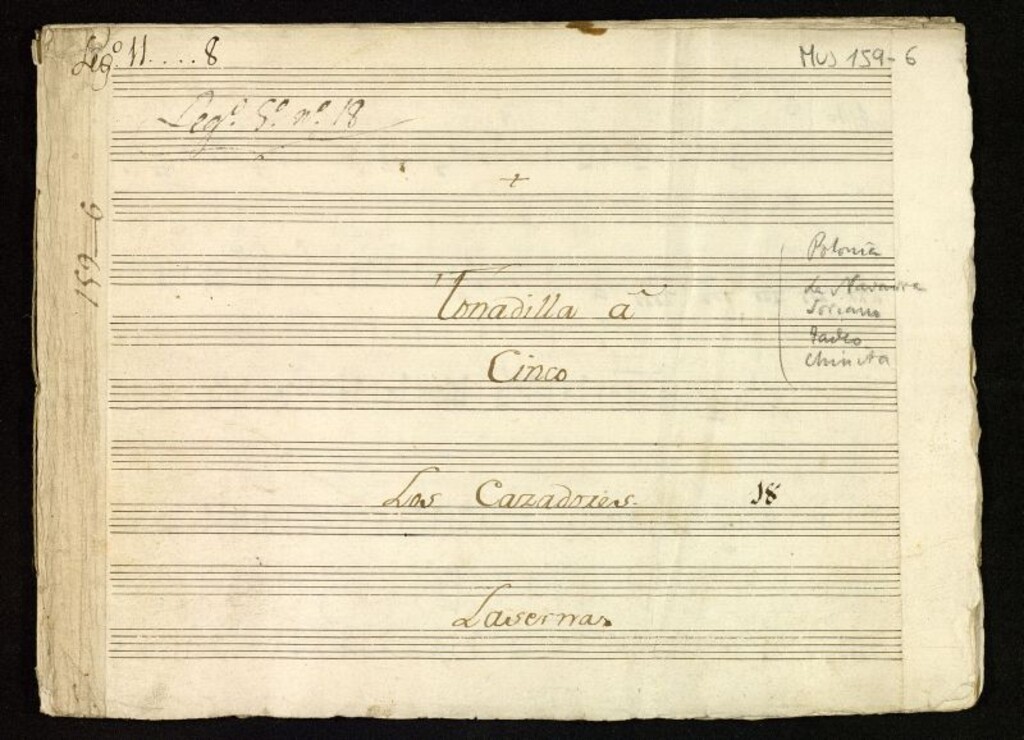 Legº. 11....8
Mus 159-6
Legº. 5º. nº. 18
+
159-6
Tonadilla a
Cinco
Polonia
La Navarra
Soriano
Tadeo
Chinita
Los Cazadores. 18
Laserna